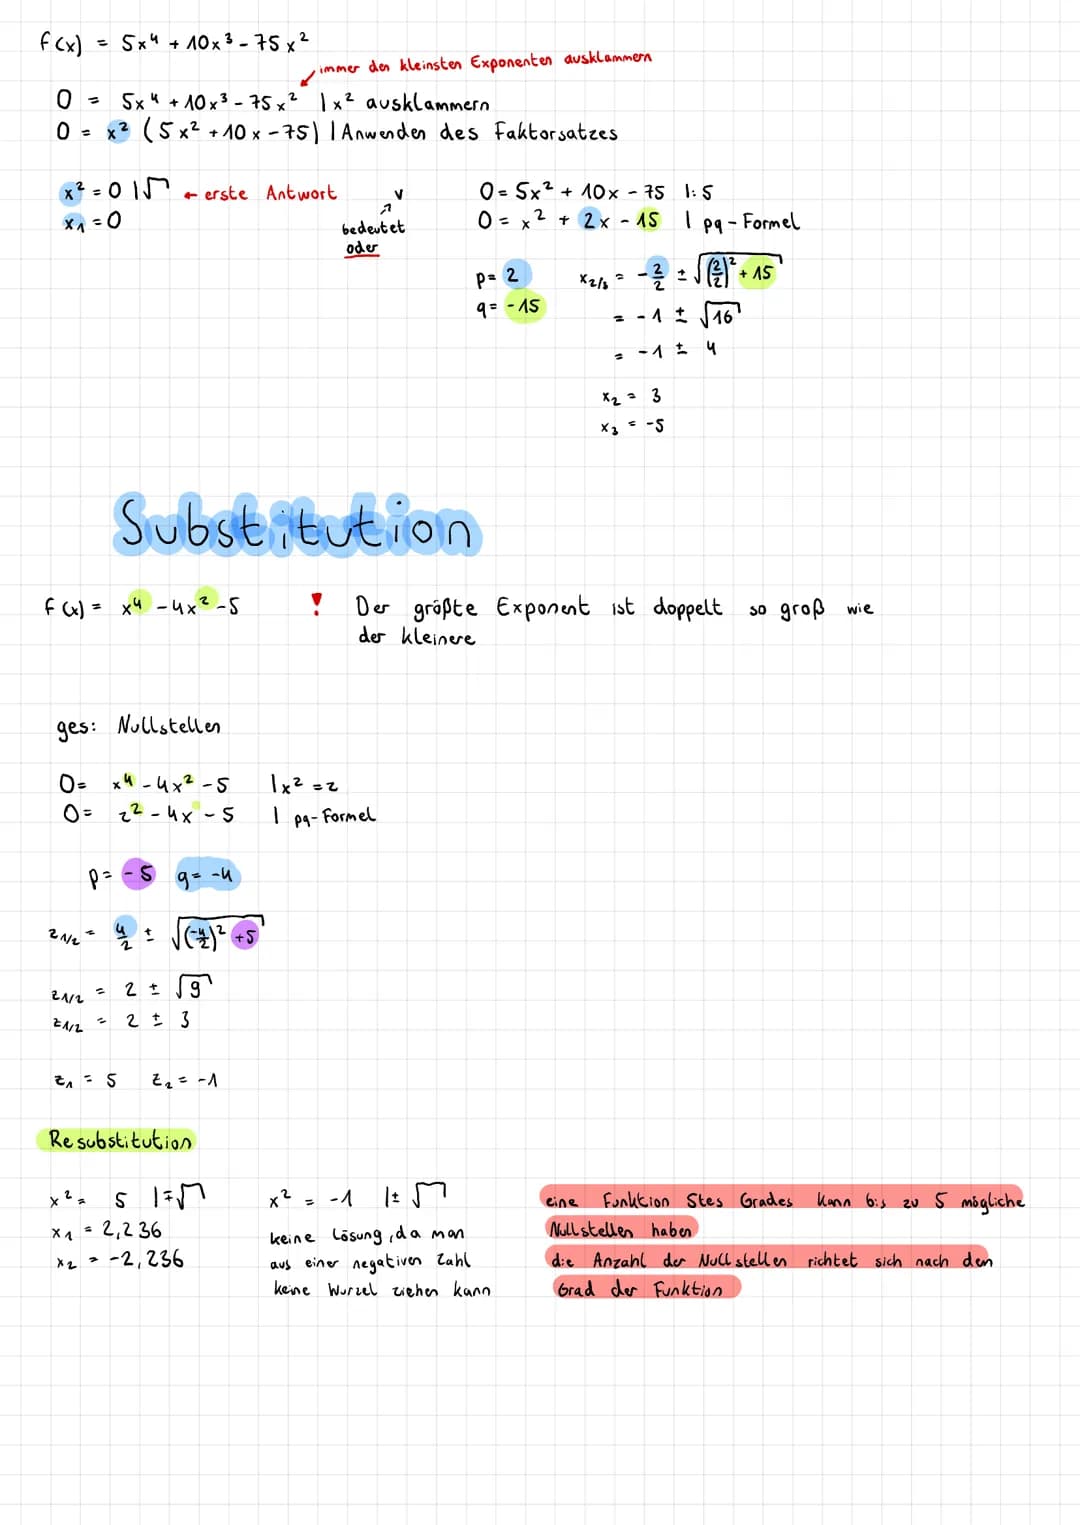 f(x) = 5x⁴ + 10x³ - 75x²
immer den kleinsten Exponenten ausklammern
0 = 5x⁴ + 10x³ - 75x² | x² ausklammern
0 = x² (5x² + 10x - 75) | Anwenden des Faktorsatzes
x² = 0 | √ ← erste Antwort
x₁ = 0
v
bedeutet
oder
0 = 5x² + 10x - 75 | : 5
0 = x² + 2x - 15 | pq-Formel
p = 2
q = -15
x₂/₃ = -2/2 ± √((2/2)² + 15)
= -1 ± √16
= -1 ± 4
x₂ = 3
x₃ = -5
Substitution
f(x) = x⁴ - 4x² - 5
! Der größte Exponent ist doppelt so groß wie
der kleinere
ges: Nullstellen
0 = x⁴ - 4x² - 5 | x² = z
0 = z² - 4x - 5 | pq-Formel
p = -5 q = -4
z₁/₂ = 4/2 ± √((-4/2)² + 5)
z₁/₂ = 2 ± √9
z₁/₂ = 2 ± 3
z₁ = 5 z₂ = -1
Resubstitution
x² = 5 | ∓√
x₁ = 2,236
x₂ = -2,236
x² = -1 | ± √
keine Lösung, da man
aus einer negativen Zahl
keine Wurzel ziehen kann
eine Funktion 5tes Grades kann bis zu 5 mögliche
Nullstellen haben
die Anzahl der Nullstellen richtet sich nach den
Grad der Funktion